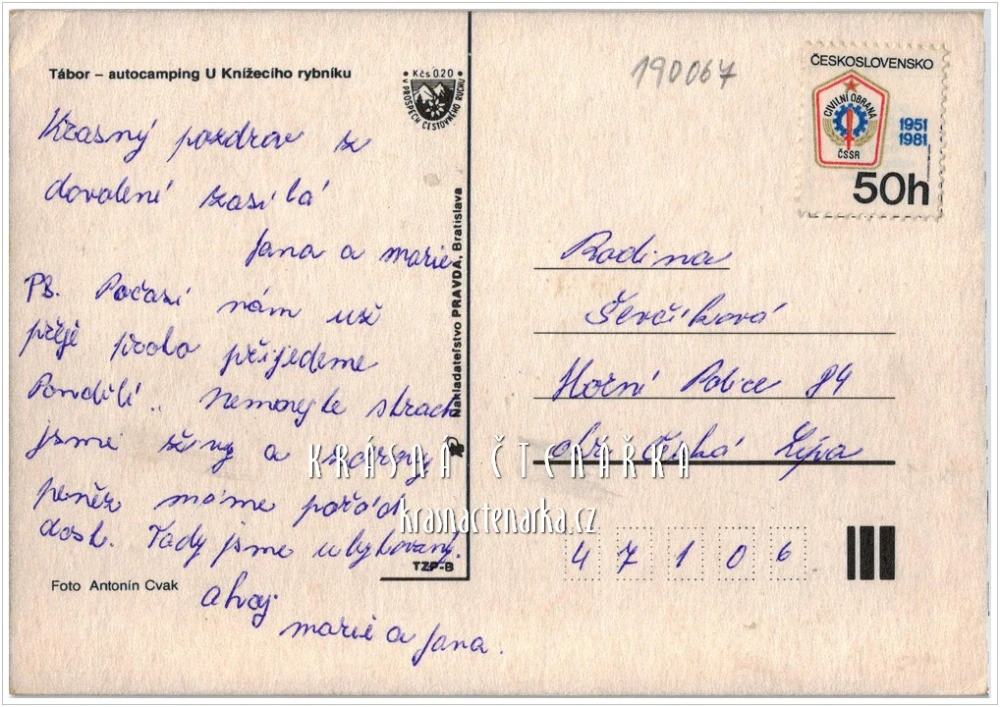 Tábor – autocamping U Knížecího rybníku
Kčs 0.20
V PROSPĚCH CESTOVNÉHO RUCHU
Krasný pozdrav z
dovolené zasílá
Jana a marie
PS. Počasí nám už
přeje proto přijedeme
Pondělí.. Nemnejte strach
jsme živy a zdrávy
peněz máme pořád
dost. Tady jsme ubytovaný.
ahoj
marie a Jana.
Foto Antonín Cvak
Nakladateľstvo PRAVDA, Bratislava
TZP-B
190067
ČESKOSLOVENSKO
CIVILNÍ OBRANA
ČSSR
1951
1981
50h
Radina
Ševčíková
Horní Police 84
okr. Česká Lípa
47106
KRÁSNÁ ČTENÁŘKA
krasnactenarka.cz